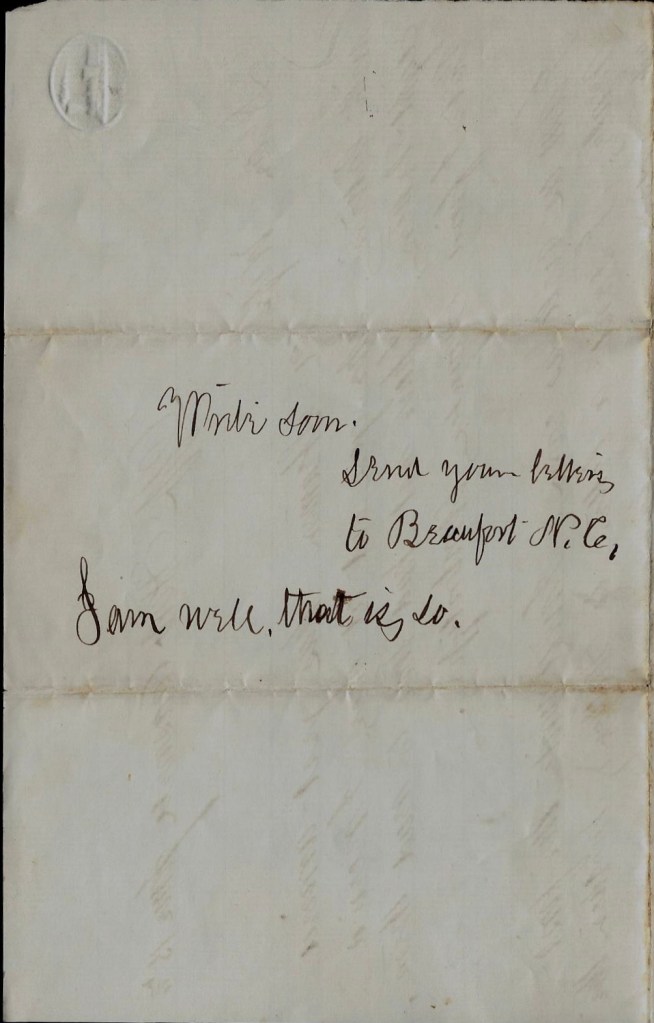 Write soon.
Send your letters
to Beaufort N.C,
I am well, that is, so.